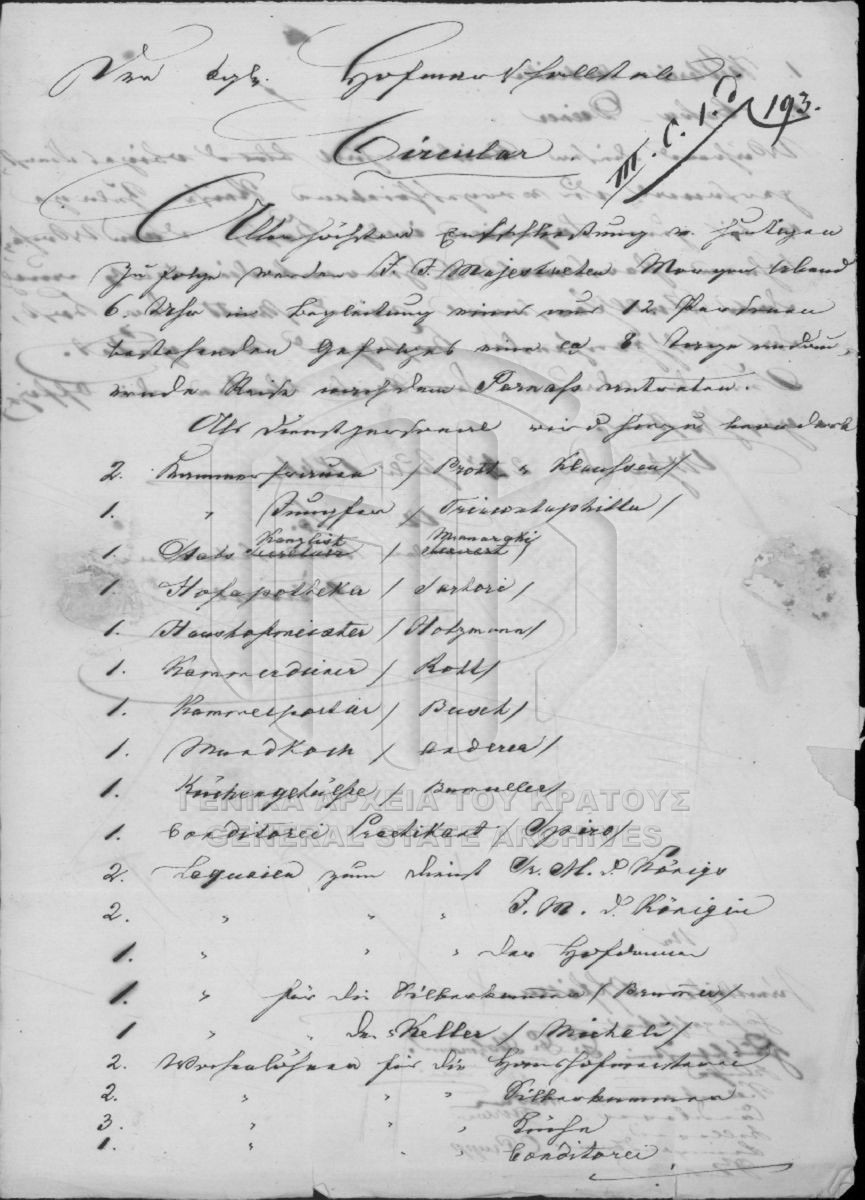 Von kgl. Hofmarschallstab
193.
M. C. 1. d
Circular.
Allerhöchster Entschließung v. heutigen
zu folge werden I. I. Majestaeten Morgen Abend
6 Uhr in Begleitung eines nur 12 Personen
bestehenden Gefolges eine ca 8 Tage andau-
ernde Reise nach dem Parnass antreten.
Als Dienstpersonal wird hiezu beordert
2. Kammerfrauen / Prott u Klausen /
1. " Jungfer / Triantaphilla /
1. Stabs Kanzlist /
1. Hofapotheker / Sartori /
1. Haushofmeister / Holzmann /
1. Kammerdiener / Rott /
1. Kammerportier / Busch /
1. Mundkoch / Andrea /
1. Küchengehülfe / Bumuller /
1. Conditorei Practikant / Spiro /
2. Laquaien zum Dienst Sr. M. d. Königs
2. " " " I. M. d. Königin
1. " " " der Hofdamen
1. " für die Silberkammer /
1 " " den Keller / Micheli /
2. Wochenlöhner für die Haushofmeisterei
2. " " " Silberkammer
3. " " " Küche
1. " " Conditorei
ΓΕΝΙΚΑ ΑΡΧΕΙΑ ΤΟΥ ΚΡΑΤΟΥΣ
GENERAL STATE ARCHIVES